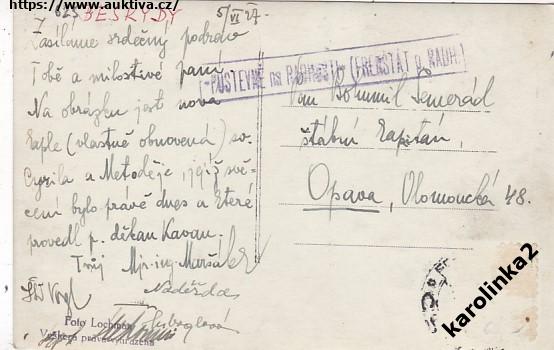 https://www.auktiva.cz/
625 BESKYDY
5/VI 27.
Zasíláme srdečný pozdrav
Tobě a milostivé paní
Na obrázku jest nova
kaple (vlastně obnovená) sv.
Cyrila a Metoděje, jejíž svě-
cení bylo právě dnes a které
provedl p. děkan Kavan.
Tvůj Mjr. ing. Maršálek
Naděžda
PUSTEVNĚ na RADHOŠTI (FRENŠTÁT p. RADH.)
Pan Bohumil Semerád
štábní kapitán,
Opava, Olomoucká 48.
Foto Lochman
karolinka2